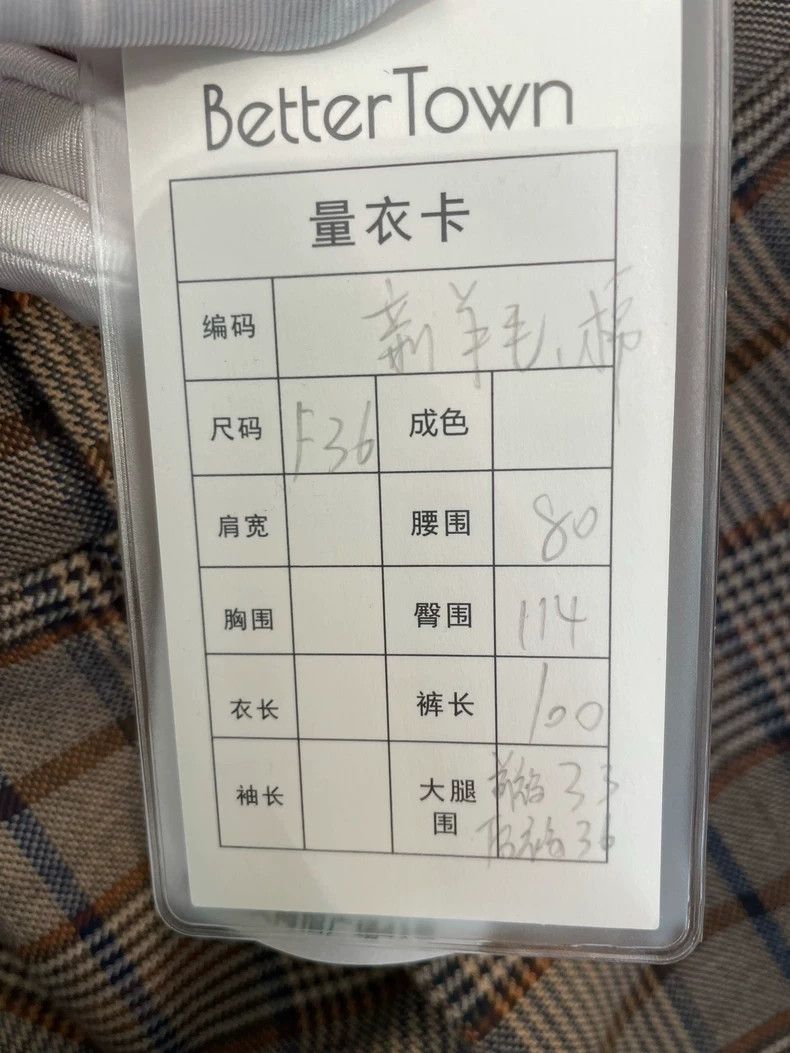 BetterTown
量衣卡
编码 新羊毛、棉
尺码 F36 成色
肩宽 腰围 80
胸围 臀围 114
衣长 裤长 100
袖长 大腿围 前裆 33
后裆 36